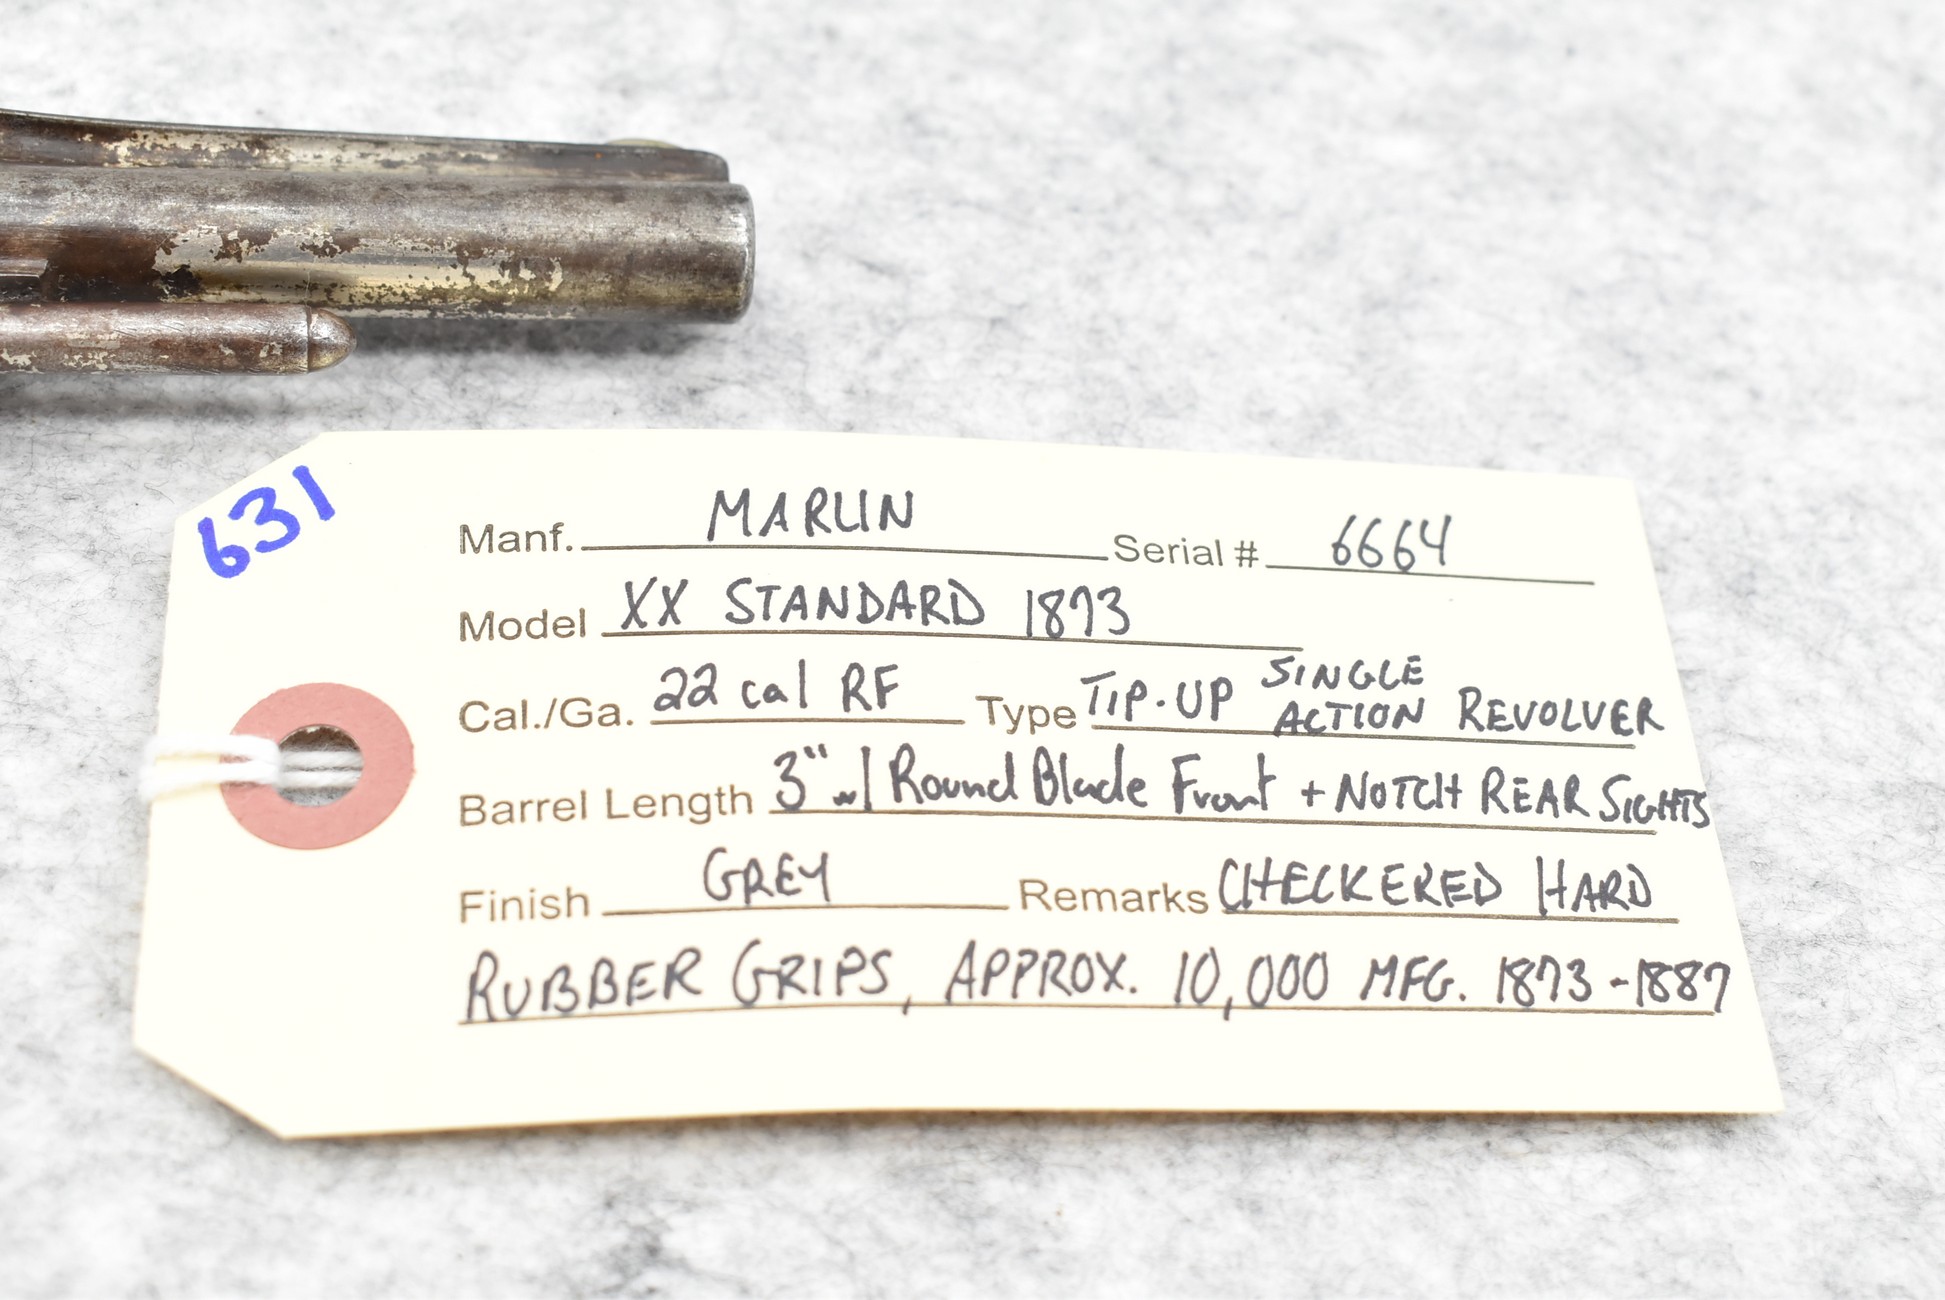 631
Manf. MARLIN Serial # 6664
Model XX STANDARD 1873
Cal./Ga. 22 cal RF Type TIP-UP SINGLE ACTION REVOLVER
Barrel Length 3" w/ Round Blade Front + NOTCH REAR SIGHTS
Finish GREY Remarks CHECKERED HARD
RUBBER GRIPS, APPROX. 10,000 MFG. 1873-1887